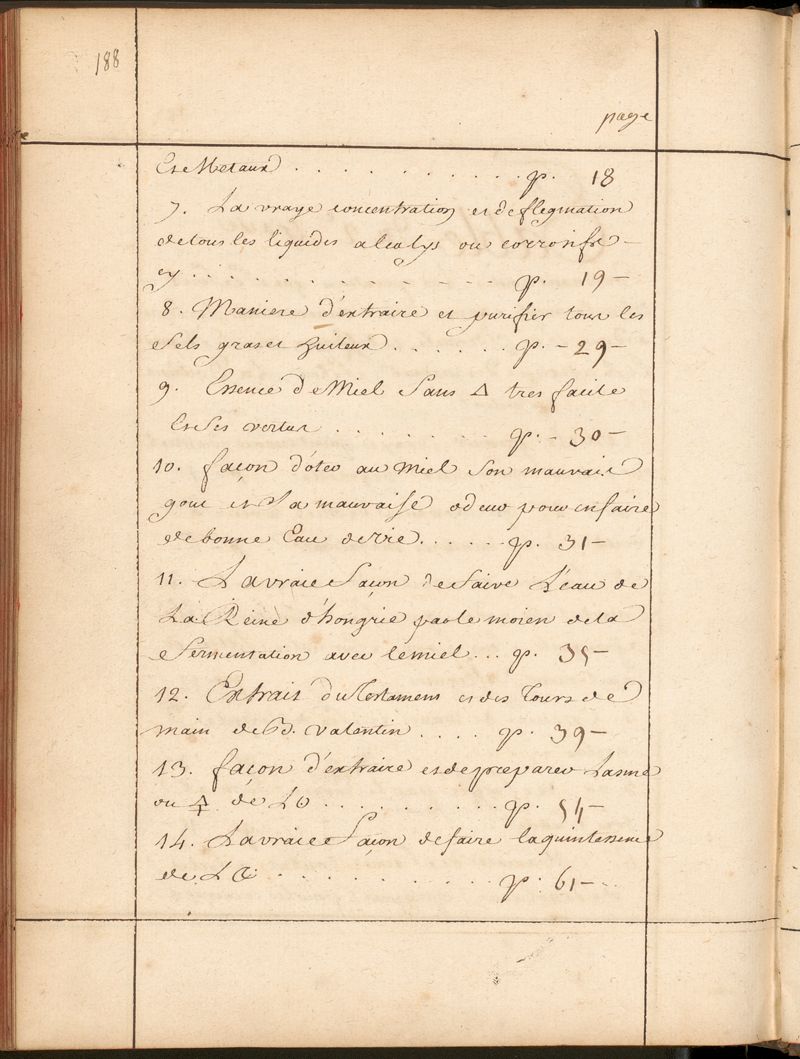 188
page
Et Metaux . . . . . . . . . . p. 18
7. La vraye concentration et deflegmation
de tous les liquides alcalys ou corrosifs –
cy . . . . . . . . . . . p. 19 –
8. Maniere d'extraire et purifier tous les
Sels gras et huileux . . . . . . p. – 29 –
9. Essence de Miel Sans △ tres facile
Et Ses vertus . . . . . . . . p. – 30 –
10. façon d'oter au Miel Son mauvais
gout et Sa mauvaise odeur pour en faire
de bonne Eau de vie . . . . . . p. 31 –
11. La vraie façon de faire L'eau de
La Reine d'hongrie par le moien de la
fermentation avec le miel . . . p. 35 –
12. Extrait du Testament et des Tours de
main de B. Valentin . . . . p. 39 –
13. façon d'extraire et de preparer Lame
ou 🜍 de L☉ . . . . . . . . . p. 54 –
14. La vraie façon de faire la quintessence
de L . . . . . . . . . . p. 61 –